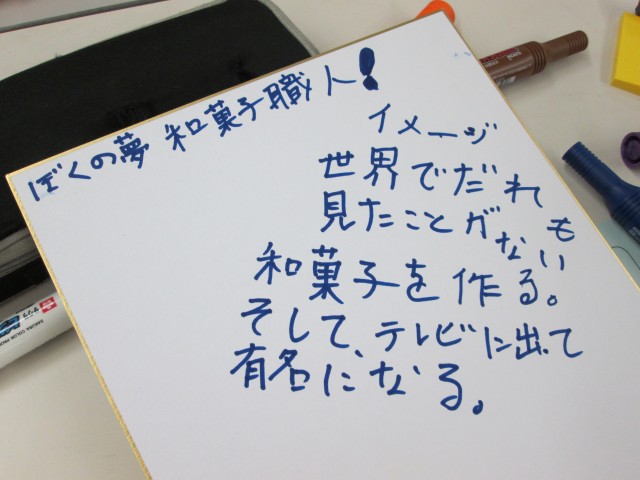 ぼくの夢 和菓子職人!
イメージ
世界でだれも
見たことがない
和菓子を作る。
そして、テレビに出て
有名になる。
SAKURA COLOR PROD